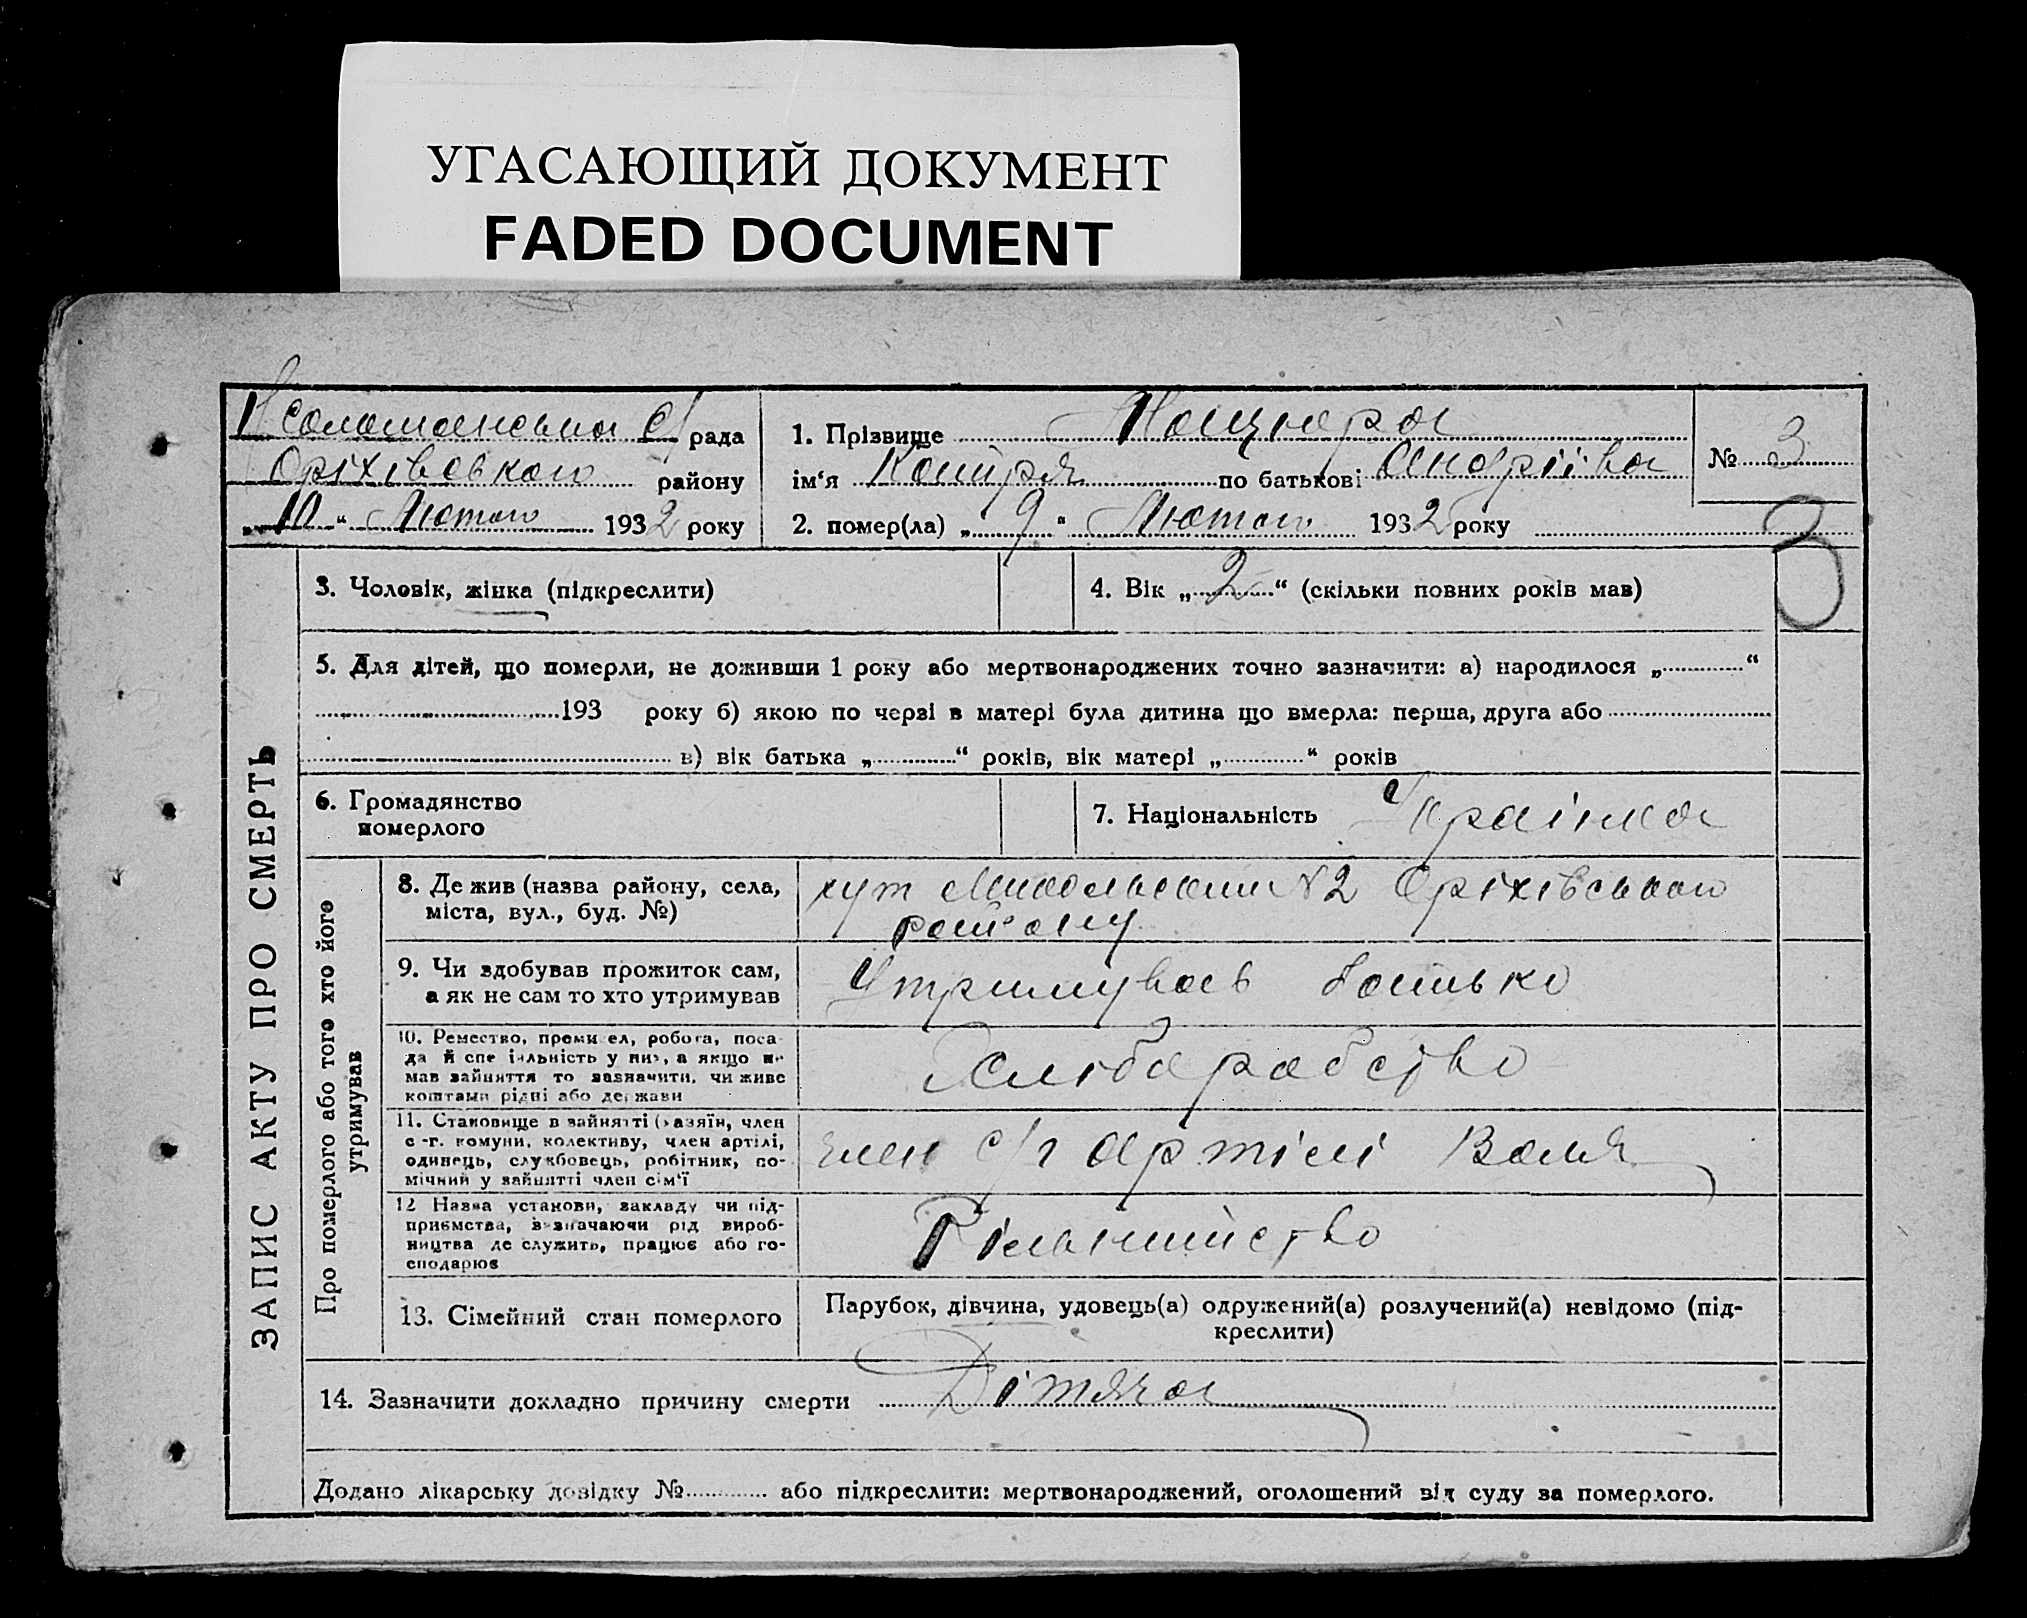 УГАСАЮЩИЙ ДОКУМЕНТ
FADED DOCUMENT
ЗАПИС АКТУ ПРО СМЕРТЬ
с/рада
Оріхівського району
„10“ Лютого 1932 року
1. Прізвище
ім‘я по батькові Андріївна
№ 3
2. помер(ла) „9“ Лютого 1932 року
3
3. Чоловік, жінка (підкреслити)
4. Вік „2“ (скільки повних років мав)
5. Для дітей, що померли, не доживши 1 року або мертвонароджених точно зазначити: а) народилося „ “
193 року б) якою по черзі в матері була дитина що вмерла: перша, друга або
в) вік батька „ “ років, вік матері „ “ років
6. Громадянство
померлого
7. Національність Українка
Про померлого або того хто його
утримував
8. Де жив (назва району, села,
міста, вул., буд. №)
хут N2 Оріхівського
району
9. Чи здобував прожиток сам,
а як не сам то хто утримував
Утримував батько
10. Ремество, промисел, робота, поса-
да й спеціальність у ній, а якщо не
мав зайняття то зазначити, чи живе
коштами рідні або держави
Хліборобство
11. Становище в зайнятті (хазяїн, член
с.-г. комуни, колективу, член артілі,
одинець, службовець, робітник, по-
мічний у зайнятті член сім'ї
член с/г артілі Воля
12 Назва установи, закладу чи під-
приємства, взначаючи рід вироб-
ництва де служить, працює або го-
сподарює
Рільництво
13. Сімейний стан померлого
Парубок, дівчина, удовець(а) одружений(а) розлучений(а) невідомо (під-
креслити)
14. Зазначити докладно причину смерти Дітяча
Додано лікарську довідку № або підкреслити: мертвонароджений, оголошений від суду за померлого.